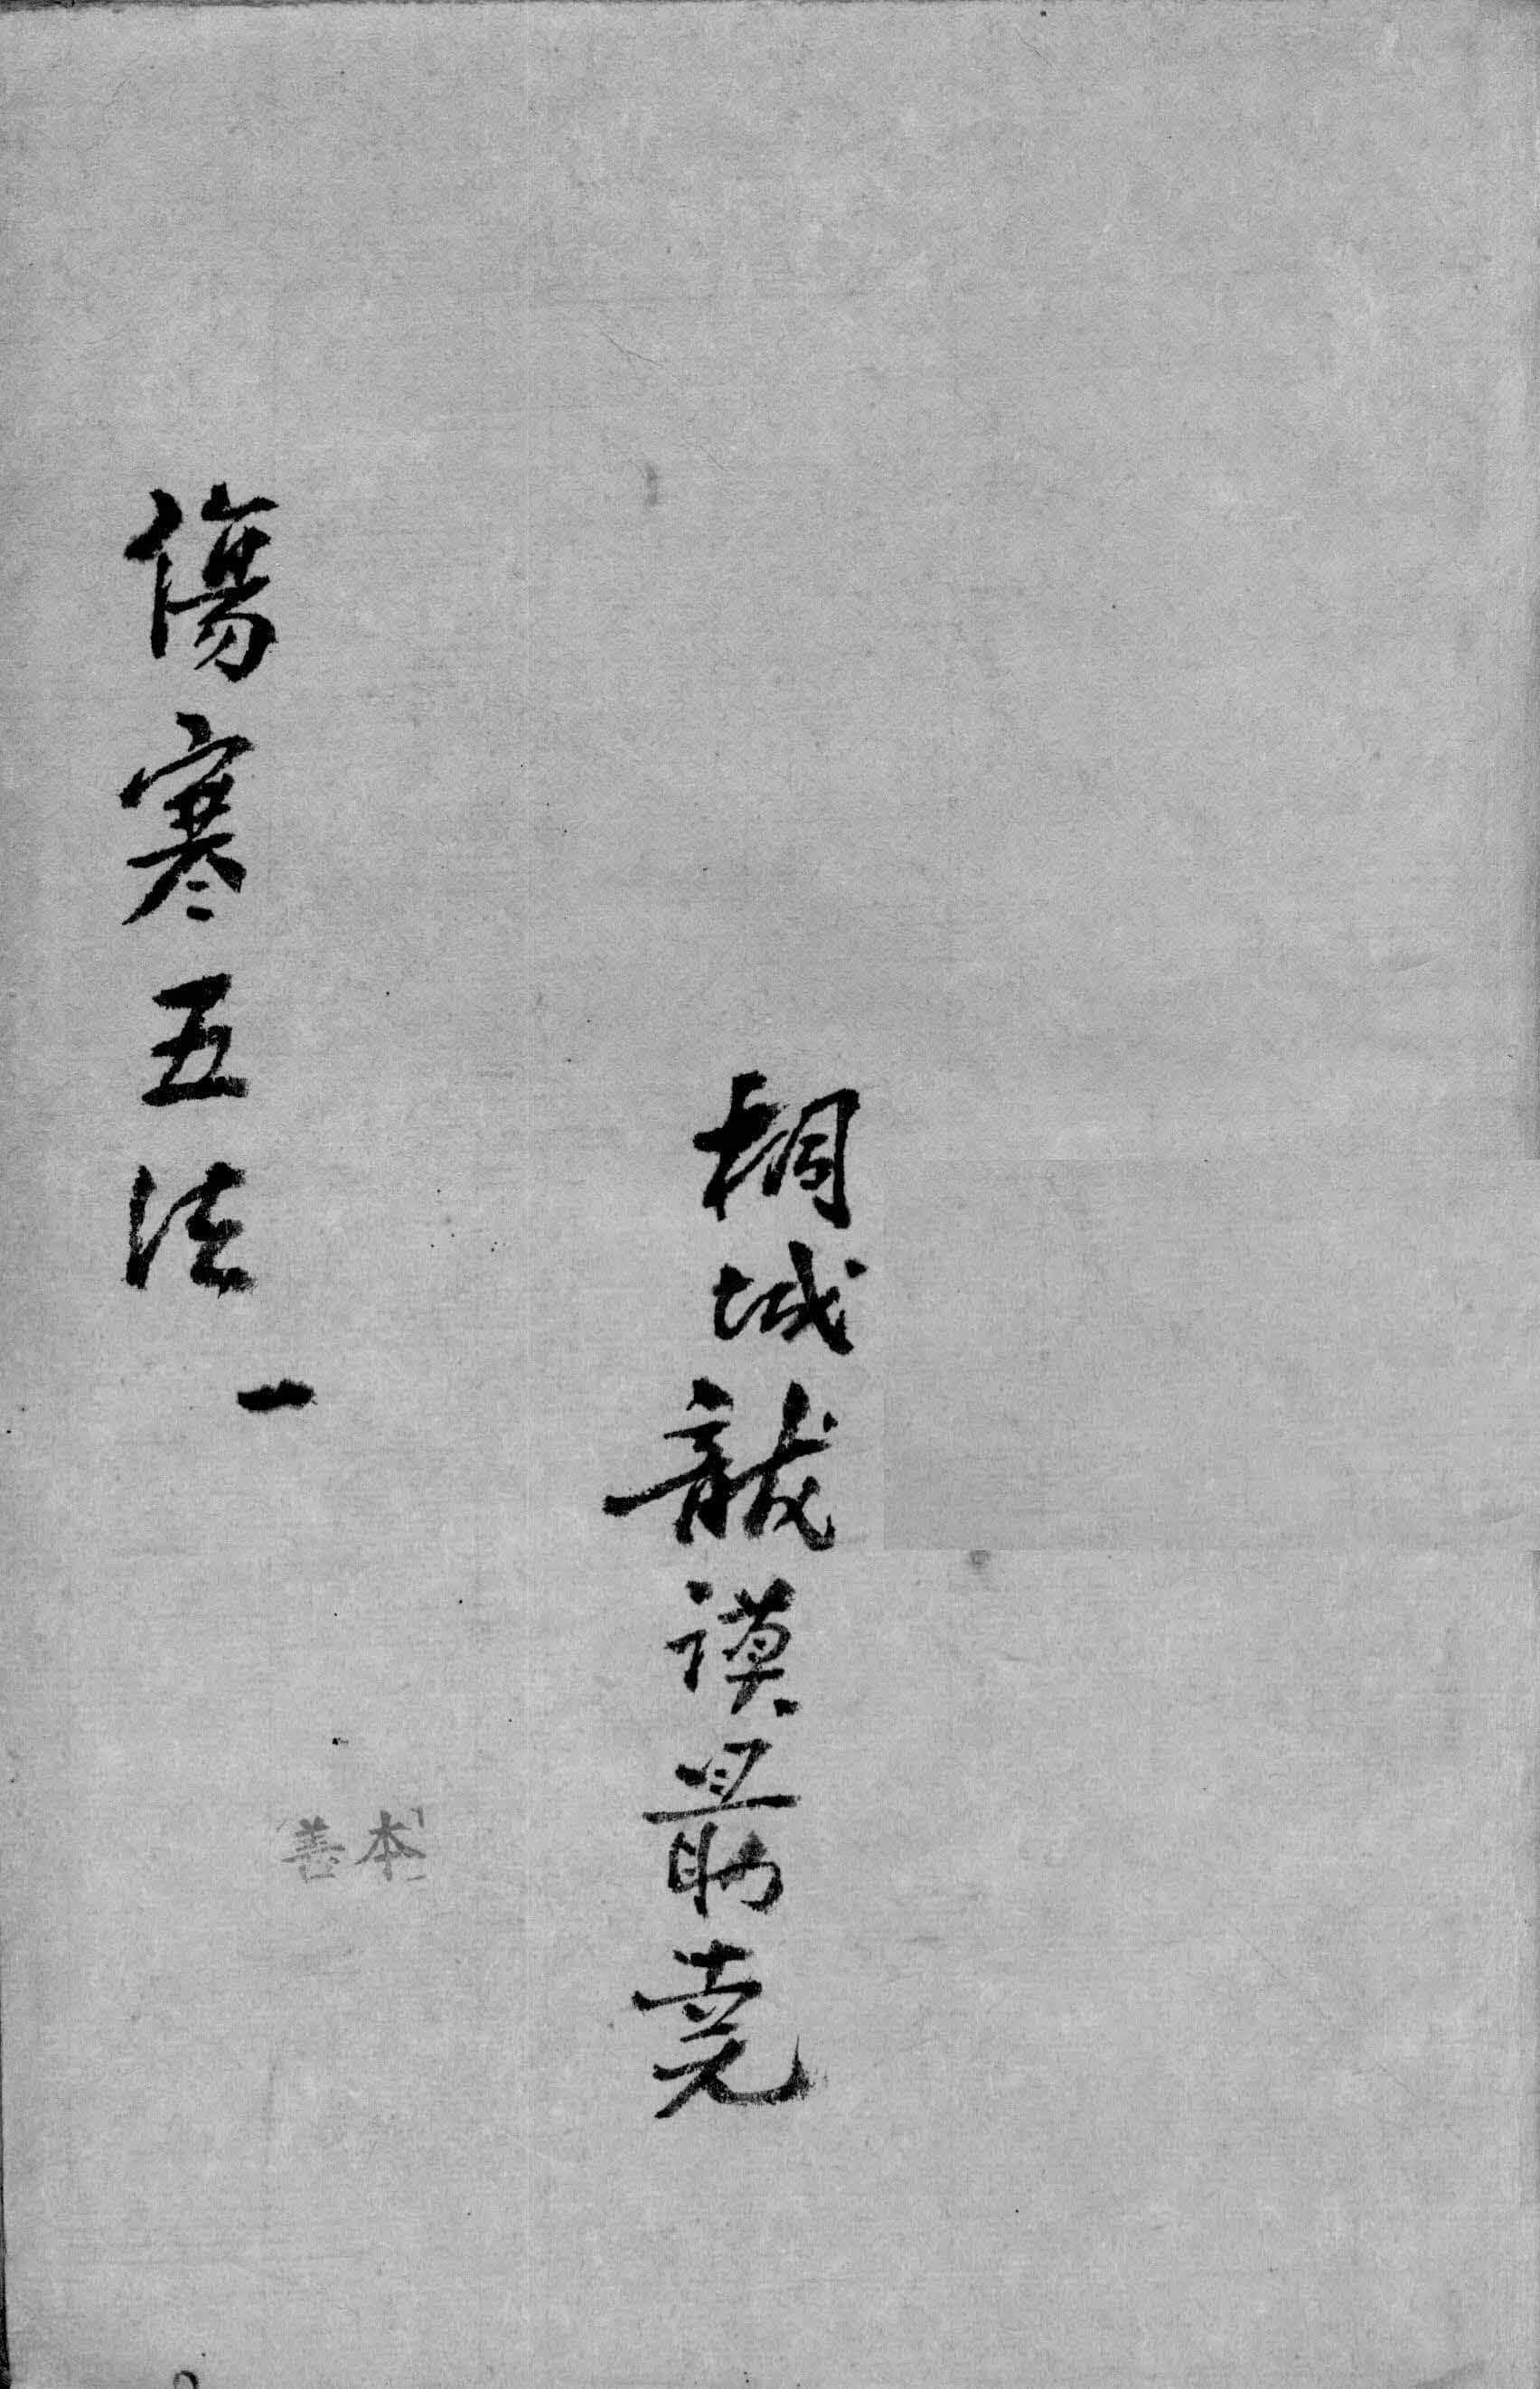 桐城龍謨最堯
傷寒五法 一
善本